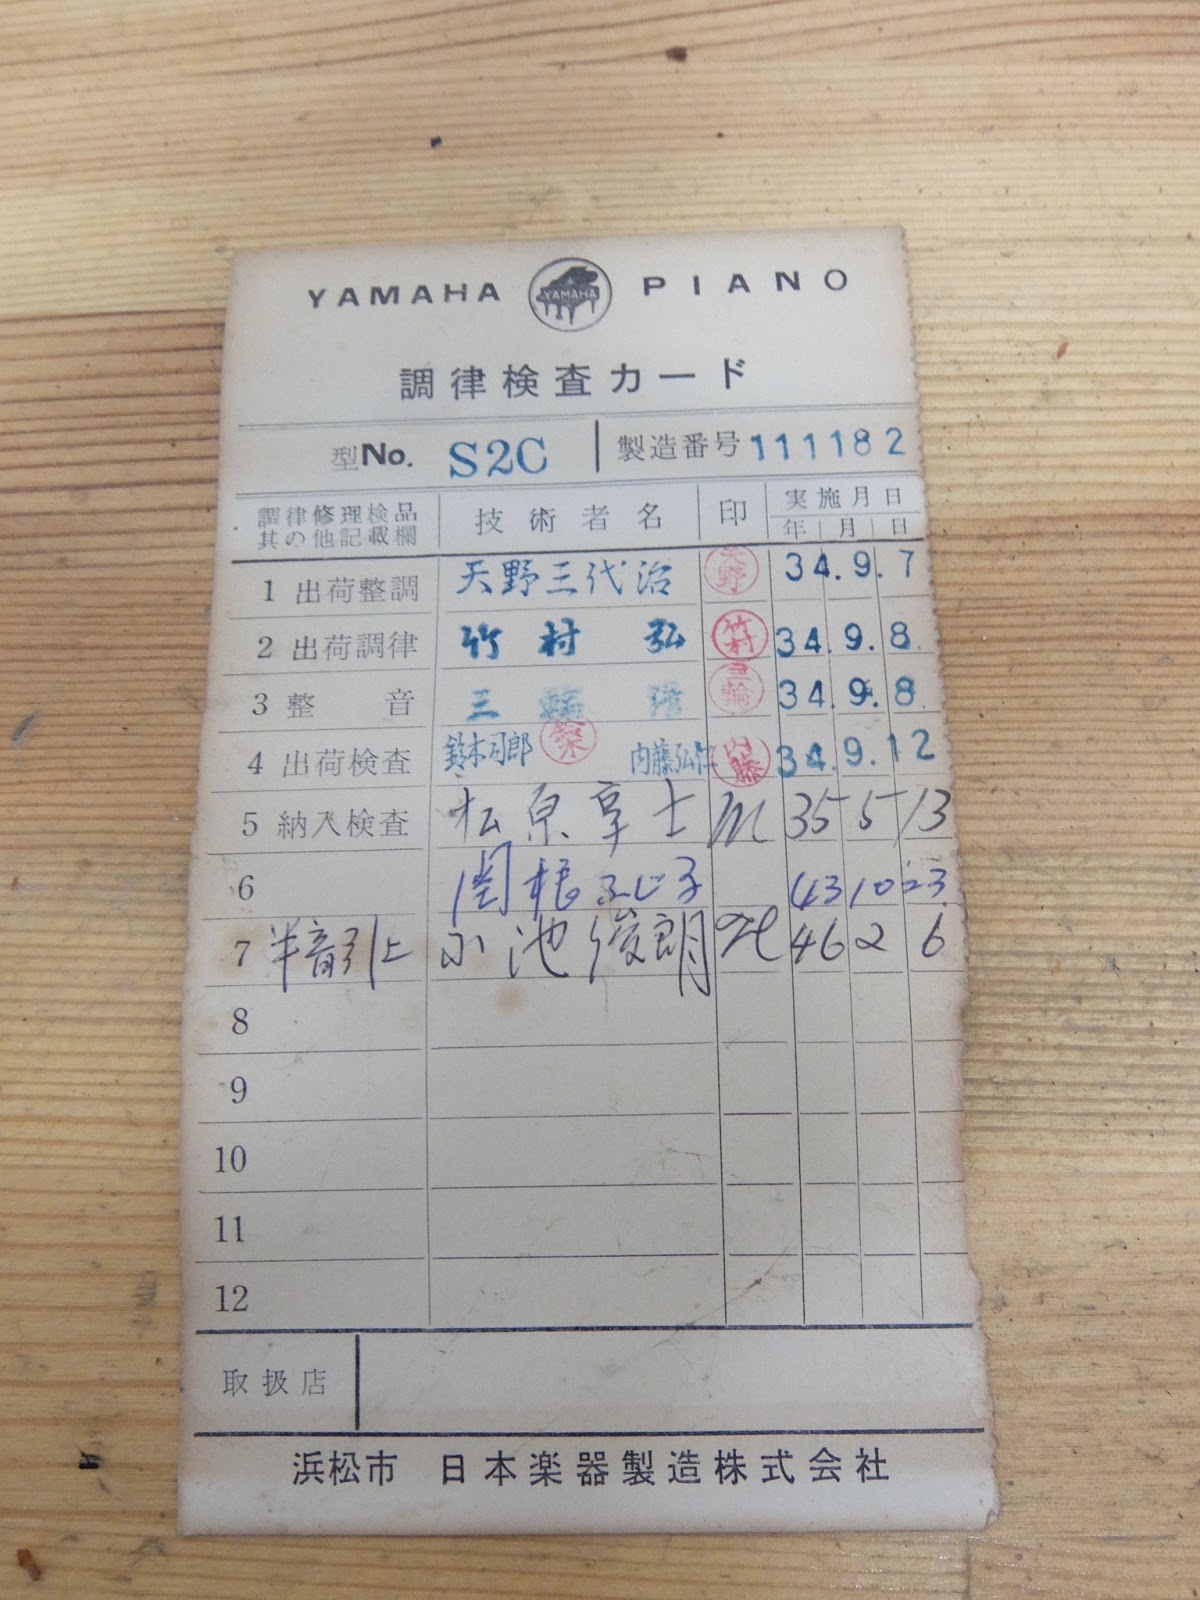 YAMAHA YAMAHA PIANO
調律検査カード
型No. S2C 製造番号 111182
調律修理検品 其の他記載欄 技術者名 印 実施月日
年 月 日
1 出荷整調 天野三代治 天野 34. 9. 7
2 出荷調律 竹村 弘 竹村 34. 9. 8
3 整音 三輪 三輪 34. 9. 8
4 出荷検査 鈴木司郎 鈴木 内藤弘 内藤 34. 9. 12
5 納入検査 松原享士 m 35 5 13
6 関根ふじ子 43 10 23
7 半音引上 小池俊朗 46 2 6
8
9
10
11
12
取扱店
浜松市 日本楽器製造株式会社